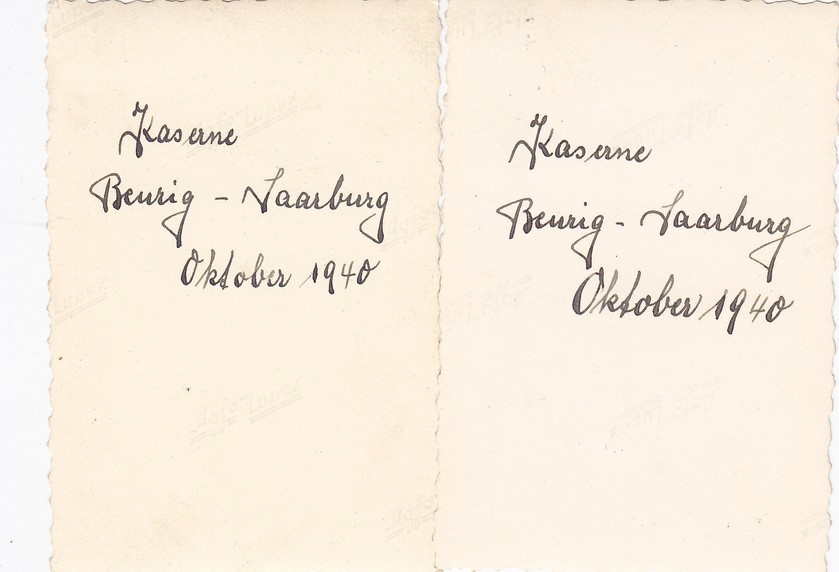 Kaserne
Beurig - Saarburg
Oktober 1940
Kaserne
Beurig - Saarburg
Oktober 1940